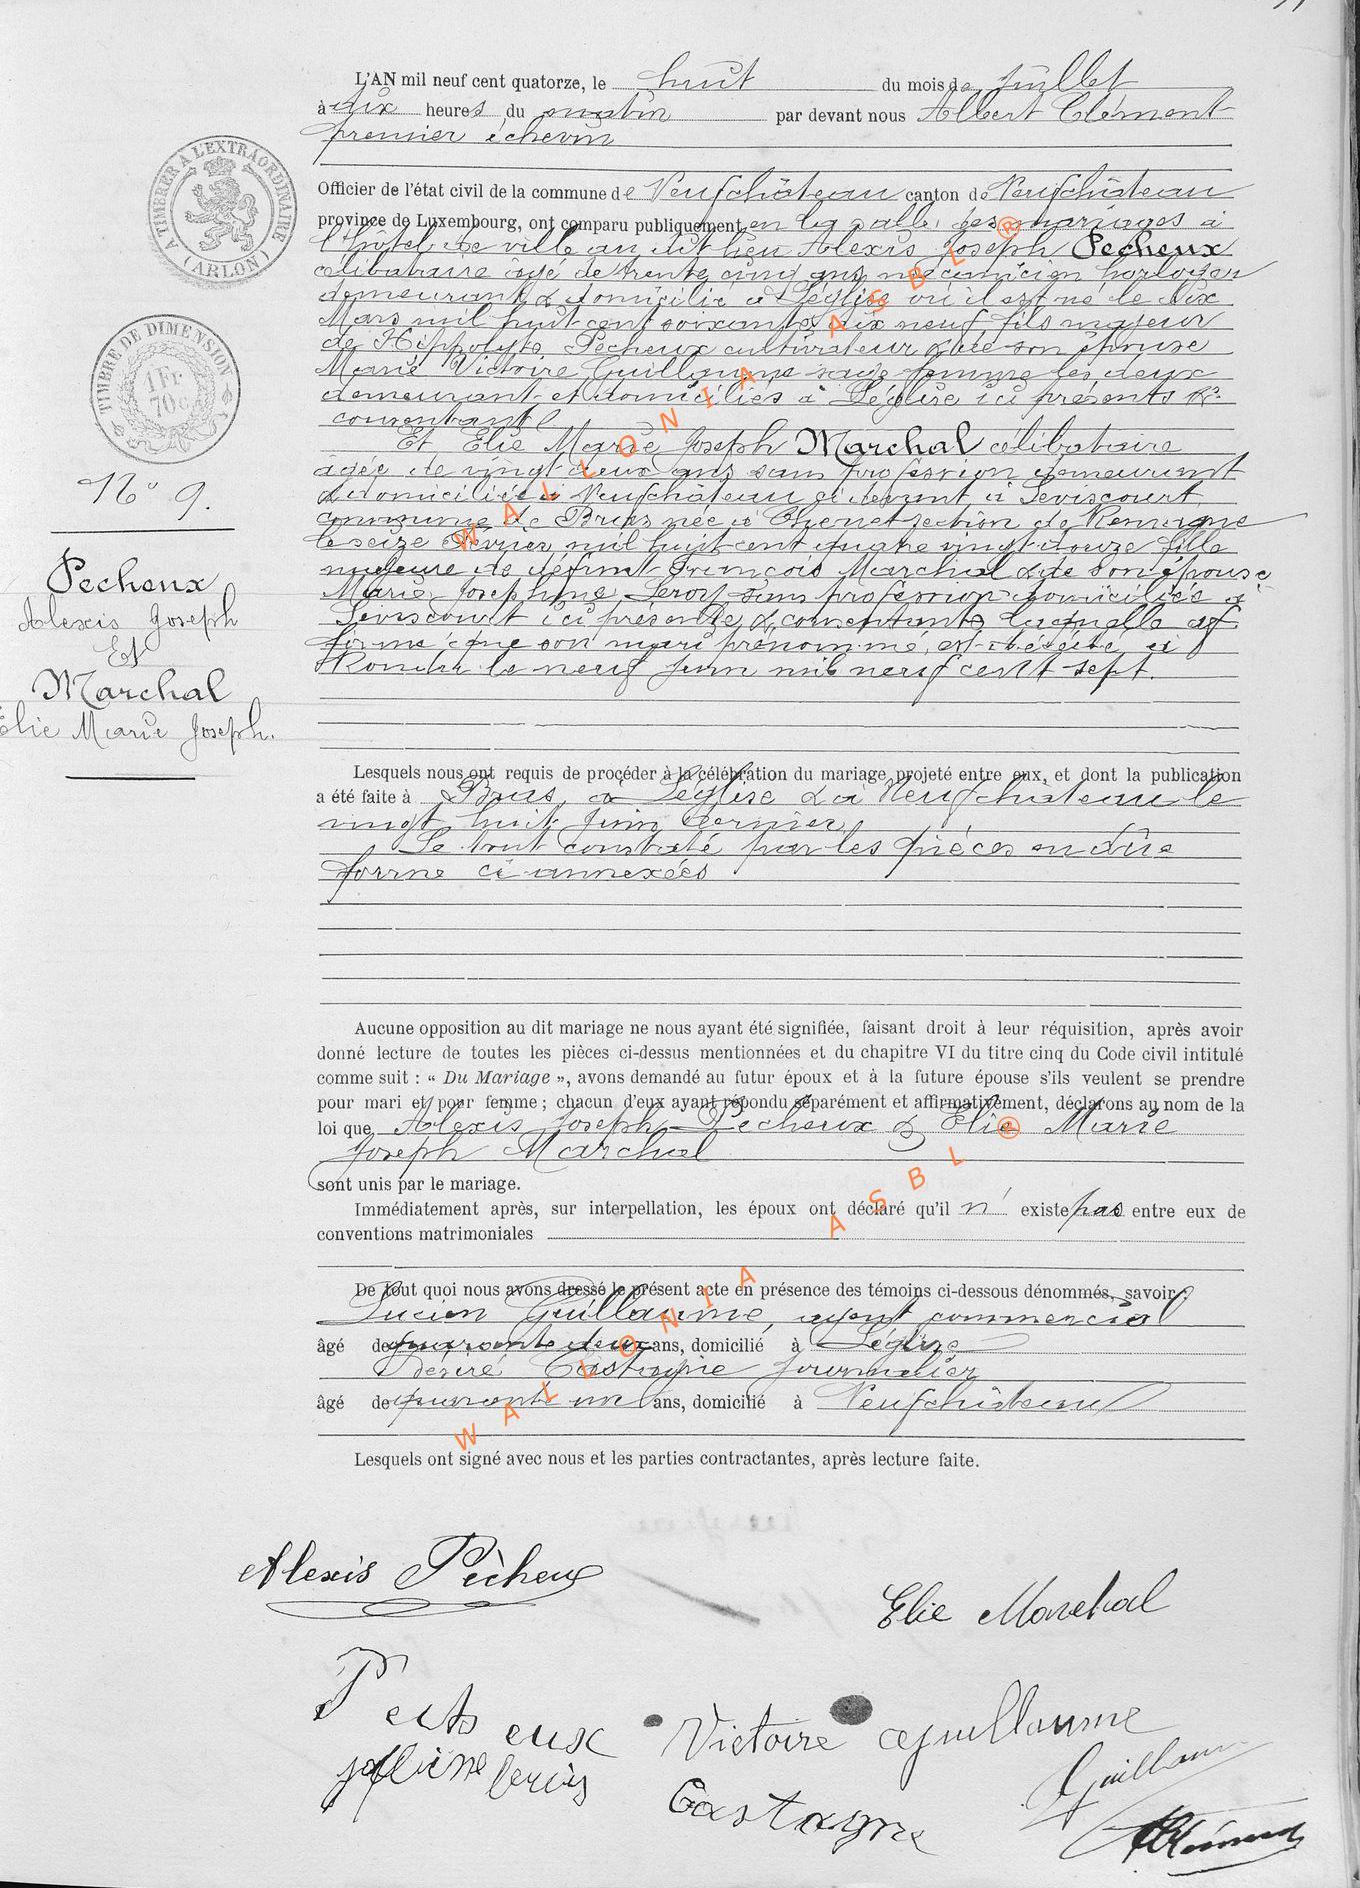 L'AN mil neuf cent quatorze, le huit du mois de juillet
à dix heures du matin par devant nous Albert Clément
premier échevin
Officier de l'état civil de la commune de Neufchâteau canton de Neufchâteau
province de Luxembourg, ont comparu publiquement en la salle des mariages à
l'hôtel de ville au dit lieu Alexis Joseph Pecheux
célibataire âgé de trente cinq ans mécanicien horloger
demeurant & domicilié à Léglise où il est né le dix
Mars mil huit cent soixante dix neuf, fils majeur
de Hippolyte Pecheux cultivateur & de son épouse
Marie Victoire Guillaume sage femme les deux
demeurant et domiciliés à Léglise ici présents &
consentants
Et Elie Marie Joseph Marchal célibataire
âgée de vingt deux ans sans profession demeurant
& domiciliée à Neufchâteau ci devant à Séviscourt
commune de Bras née à Chenet section de Remagne
le seize Février mil huit cent quatre vingt douze fille
majeure de défunt François Marchal & de son épouse
Marie Josephine Leroy sans profession domiciliée à
Séviscourt ici présente & consentante laquelle af
firme que son mari prénommé est décédé à
le neuf juin mil neuf cent sept.
A TIMBRER A L'EXTRAORDINAIRE
(ARLON)
TIMBRE DE DIMENSION
1 Fr.
70c
No 9.
Pecheux
Alexis Joseph
Et
Marchal
Elie Marie Joseph.
Lesquels nous ont requis de procéder à la célébration du mariage projeté entre eux, et dont la publication
a été faite à Bras, à Léglise & à Neufchâteau le
vingt huit juin dernier.
Le tout constaté par les pièces en dûe
forme ci-annexées
Aucune opposition au dit mariage ne nous ayant été signifiée, faisant droit à leur réquisition, après avoir
donné lecture de toutes les pièces ci-dessus mentionnées et du chapitre VI du titre cinq du Code civil intitulé
comme suit : « Du Mariage », avons demandé au futur époux et à la future épouse s'ils veulent se prendre
pour mari et pour femme ; chacun d'eux ayant répondu séparément et affirmativement, déclarons au nom de la
loi que Alexis Joseph Pecheux & Elie Marie
Joseph Marchal
sont unis par le mariage.
Immédiatement après, sur interpellation, les époux ont déclaré qu'il n' existe pas entre eux de
conventions matrimoniales
De tout quoi nous avons dressé le présent acte en présence des témoins ci-dessous dénommés, savoir :
Lucien Guillaume, agent commercial
âgé de quarante deux ans, domicilié à Léglise
Désiré Castagne journalier
âgé de quarante un ans, domicilié à Neufchâteau
Lesquels ont signé avec nous et les parties contractantes, après lecture faite.
Alexis Pècheux
Elie Marchal
Victoire Guillaume
Guillaume
Castagne
AClément
WALLONIA ASBL ®
WALLONIA ASBL ®